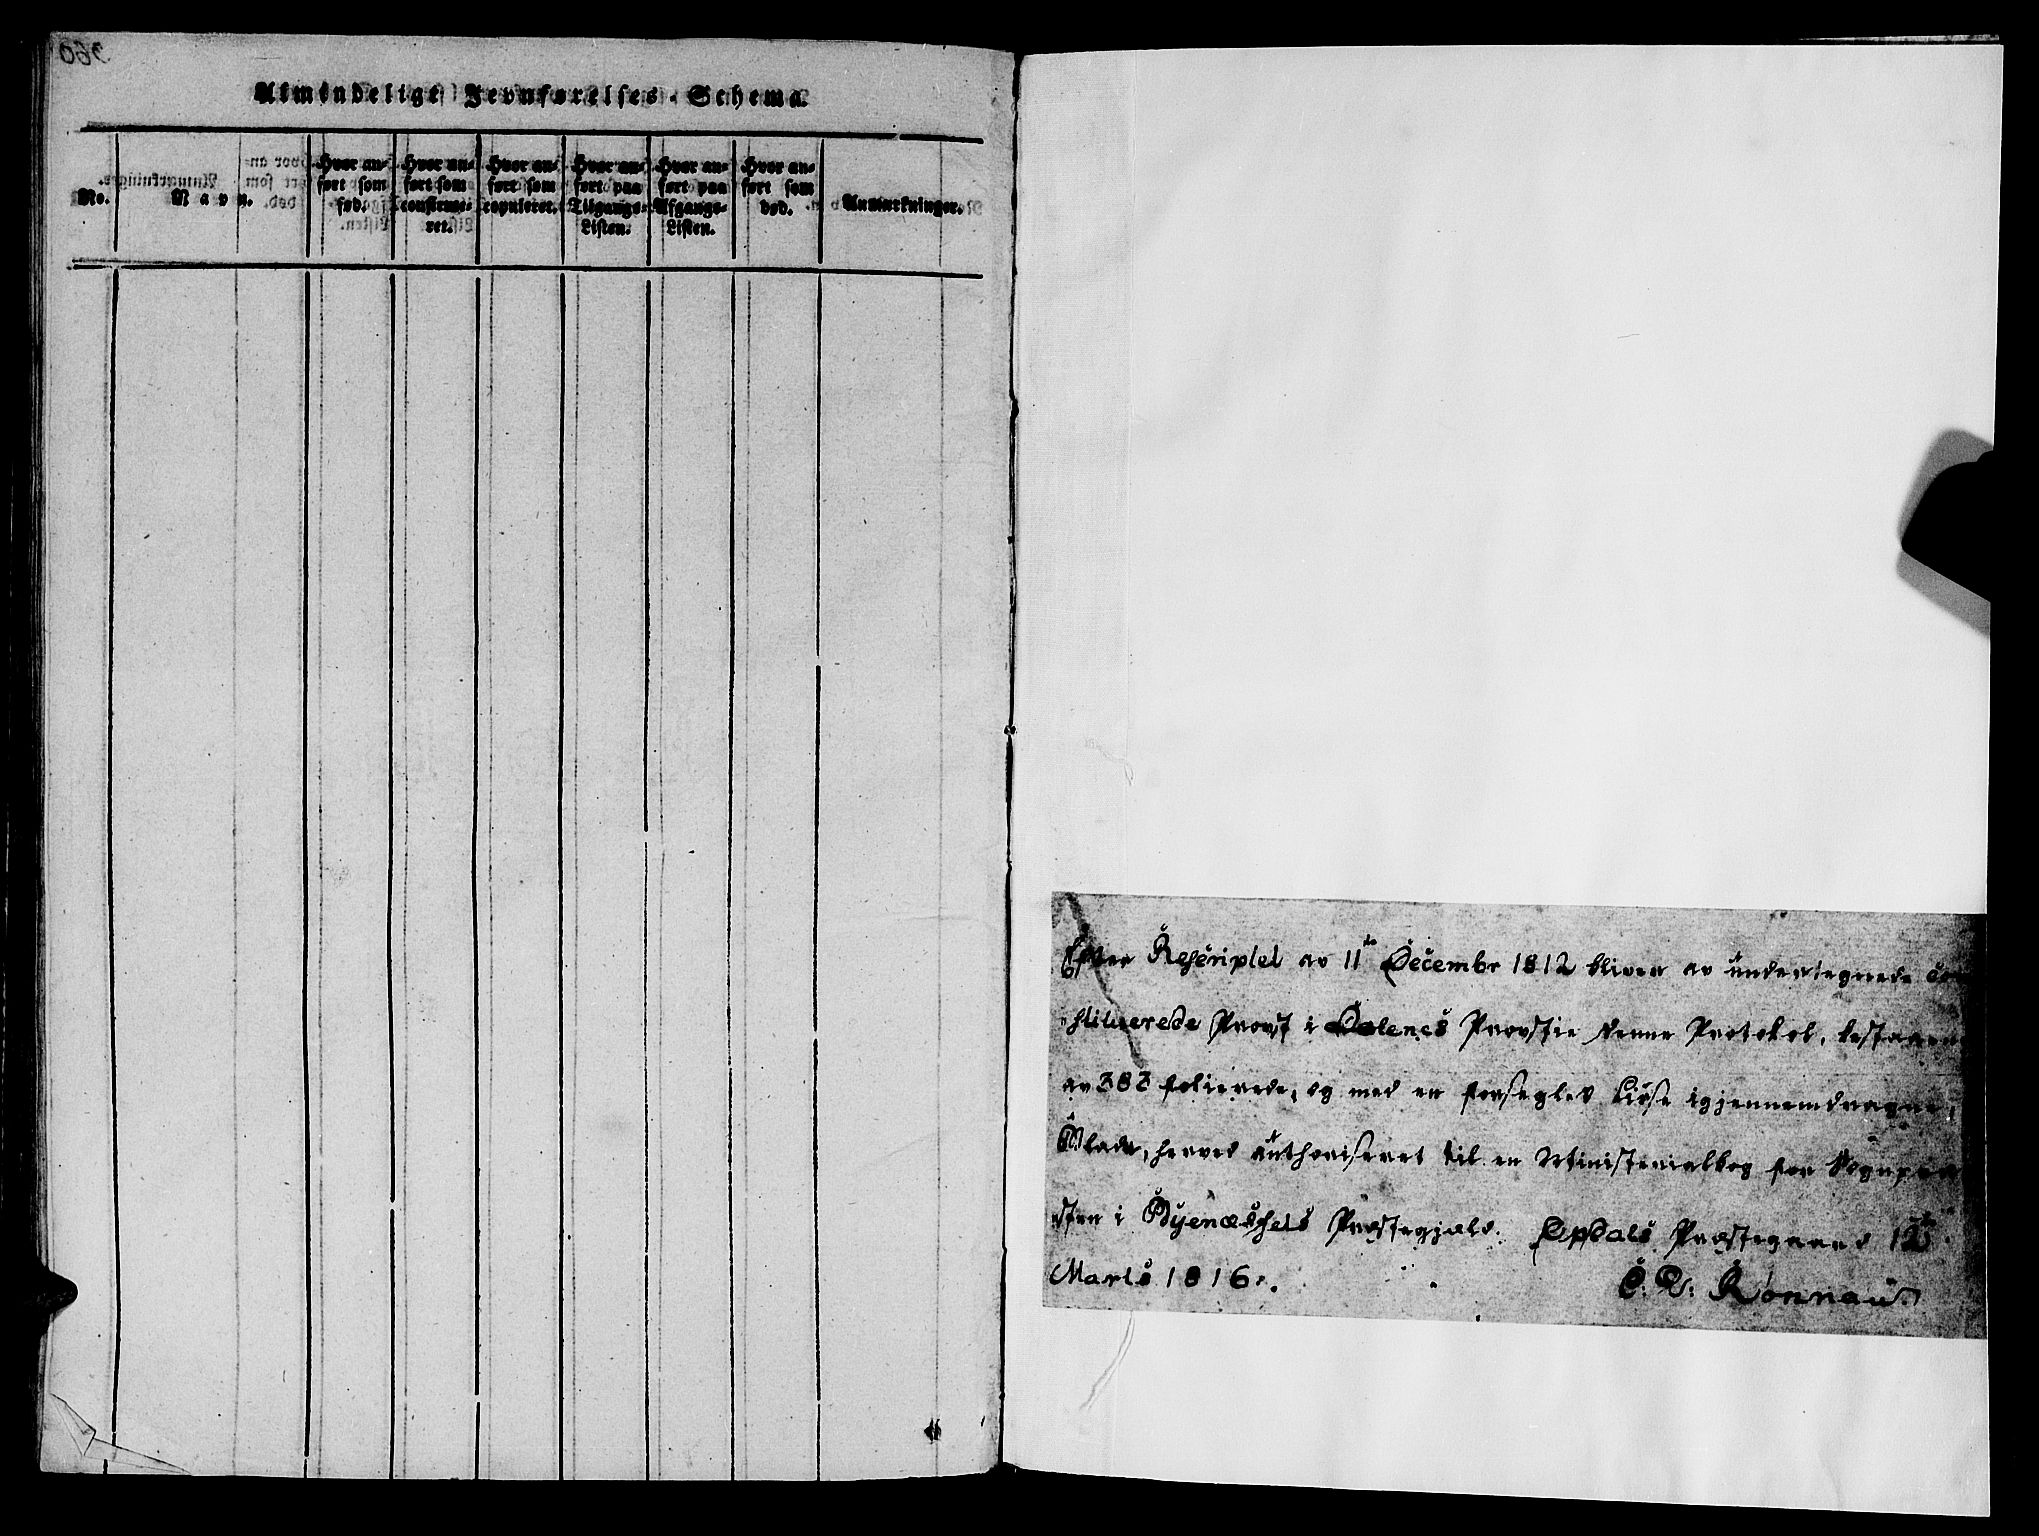 Almindelige Jevnførelses-Schema.
No.
Navn.
Hvor an-
ført som
fød.
Hvor an-
ført som
confirme-
ret.
Hvor an-
ført som
copuleret.
Hvor an-
ført paa
Tilgangs-
Listen.
Hvor an-
ført paa
Afgangs-
Listen.
Hvor an-
ført som
død.
Anmærkninger.
Efter Rescriptet av 11te Decembr 1812 bliver av undertegnede con
stituerede Provst i Dalenes Provstie denne Protokol, bestaaen
av 383 folierede, og med en forseglet Lidse igjennemdragne,
Blade, herved authoriseret til en Ministerialbog for Sognepre
sten i Byenæssets Præstegjæld. Opdals Præstegaard 12te
Marts 1816.
C. D. Rønnau.